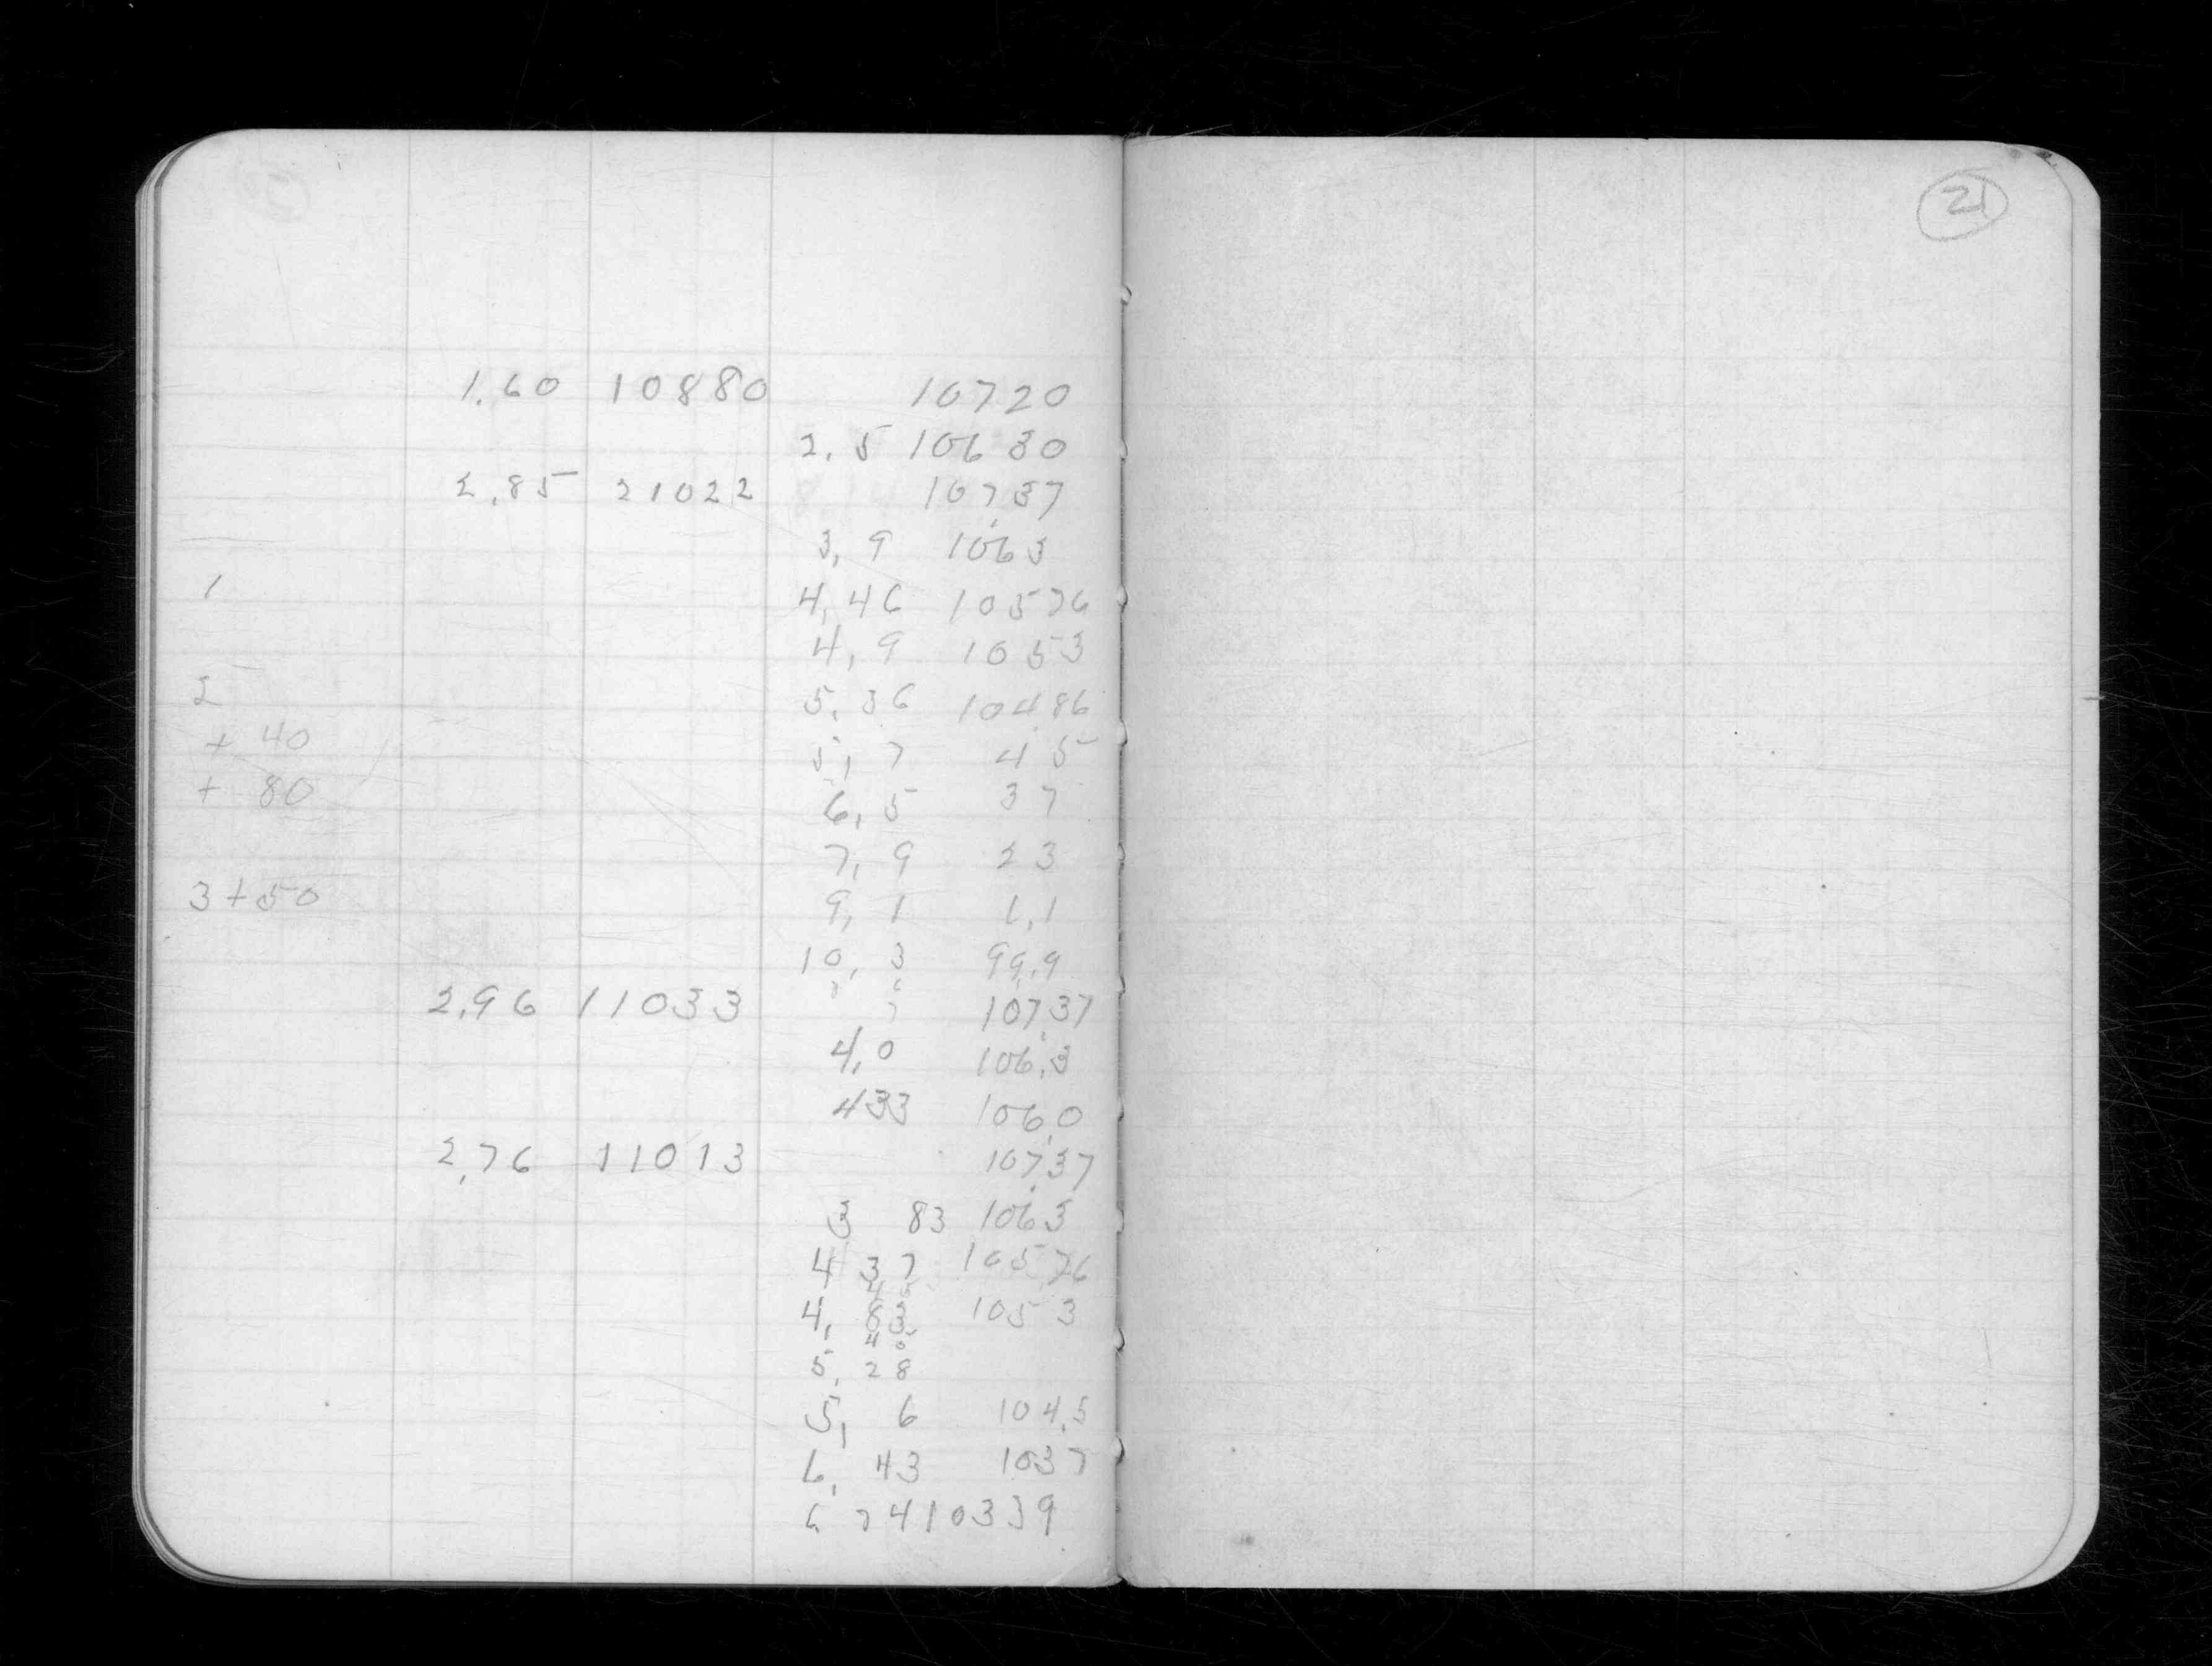 1.60 10880 10720
2,5 10630
2,85 21022 10737
3,9 1063
1 4,46 10576
4,9 1053
2 5,36 10486
+ 40 5,7 45
+ 80 6,5 37
7,9 23
3+50 9,1 1,1
10,3 99,9
2,96 11033 107,37
4,0 106,3
433 106,0
2,76 11013 107,37
3 83 1063
4 37 10576
45
4, 83 1053
45
5, 28
5, 6 104,5
6, 43 1037
6 74 10339
21